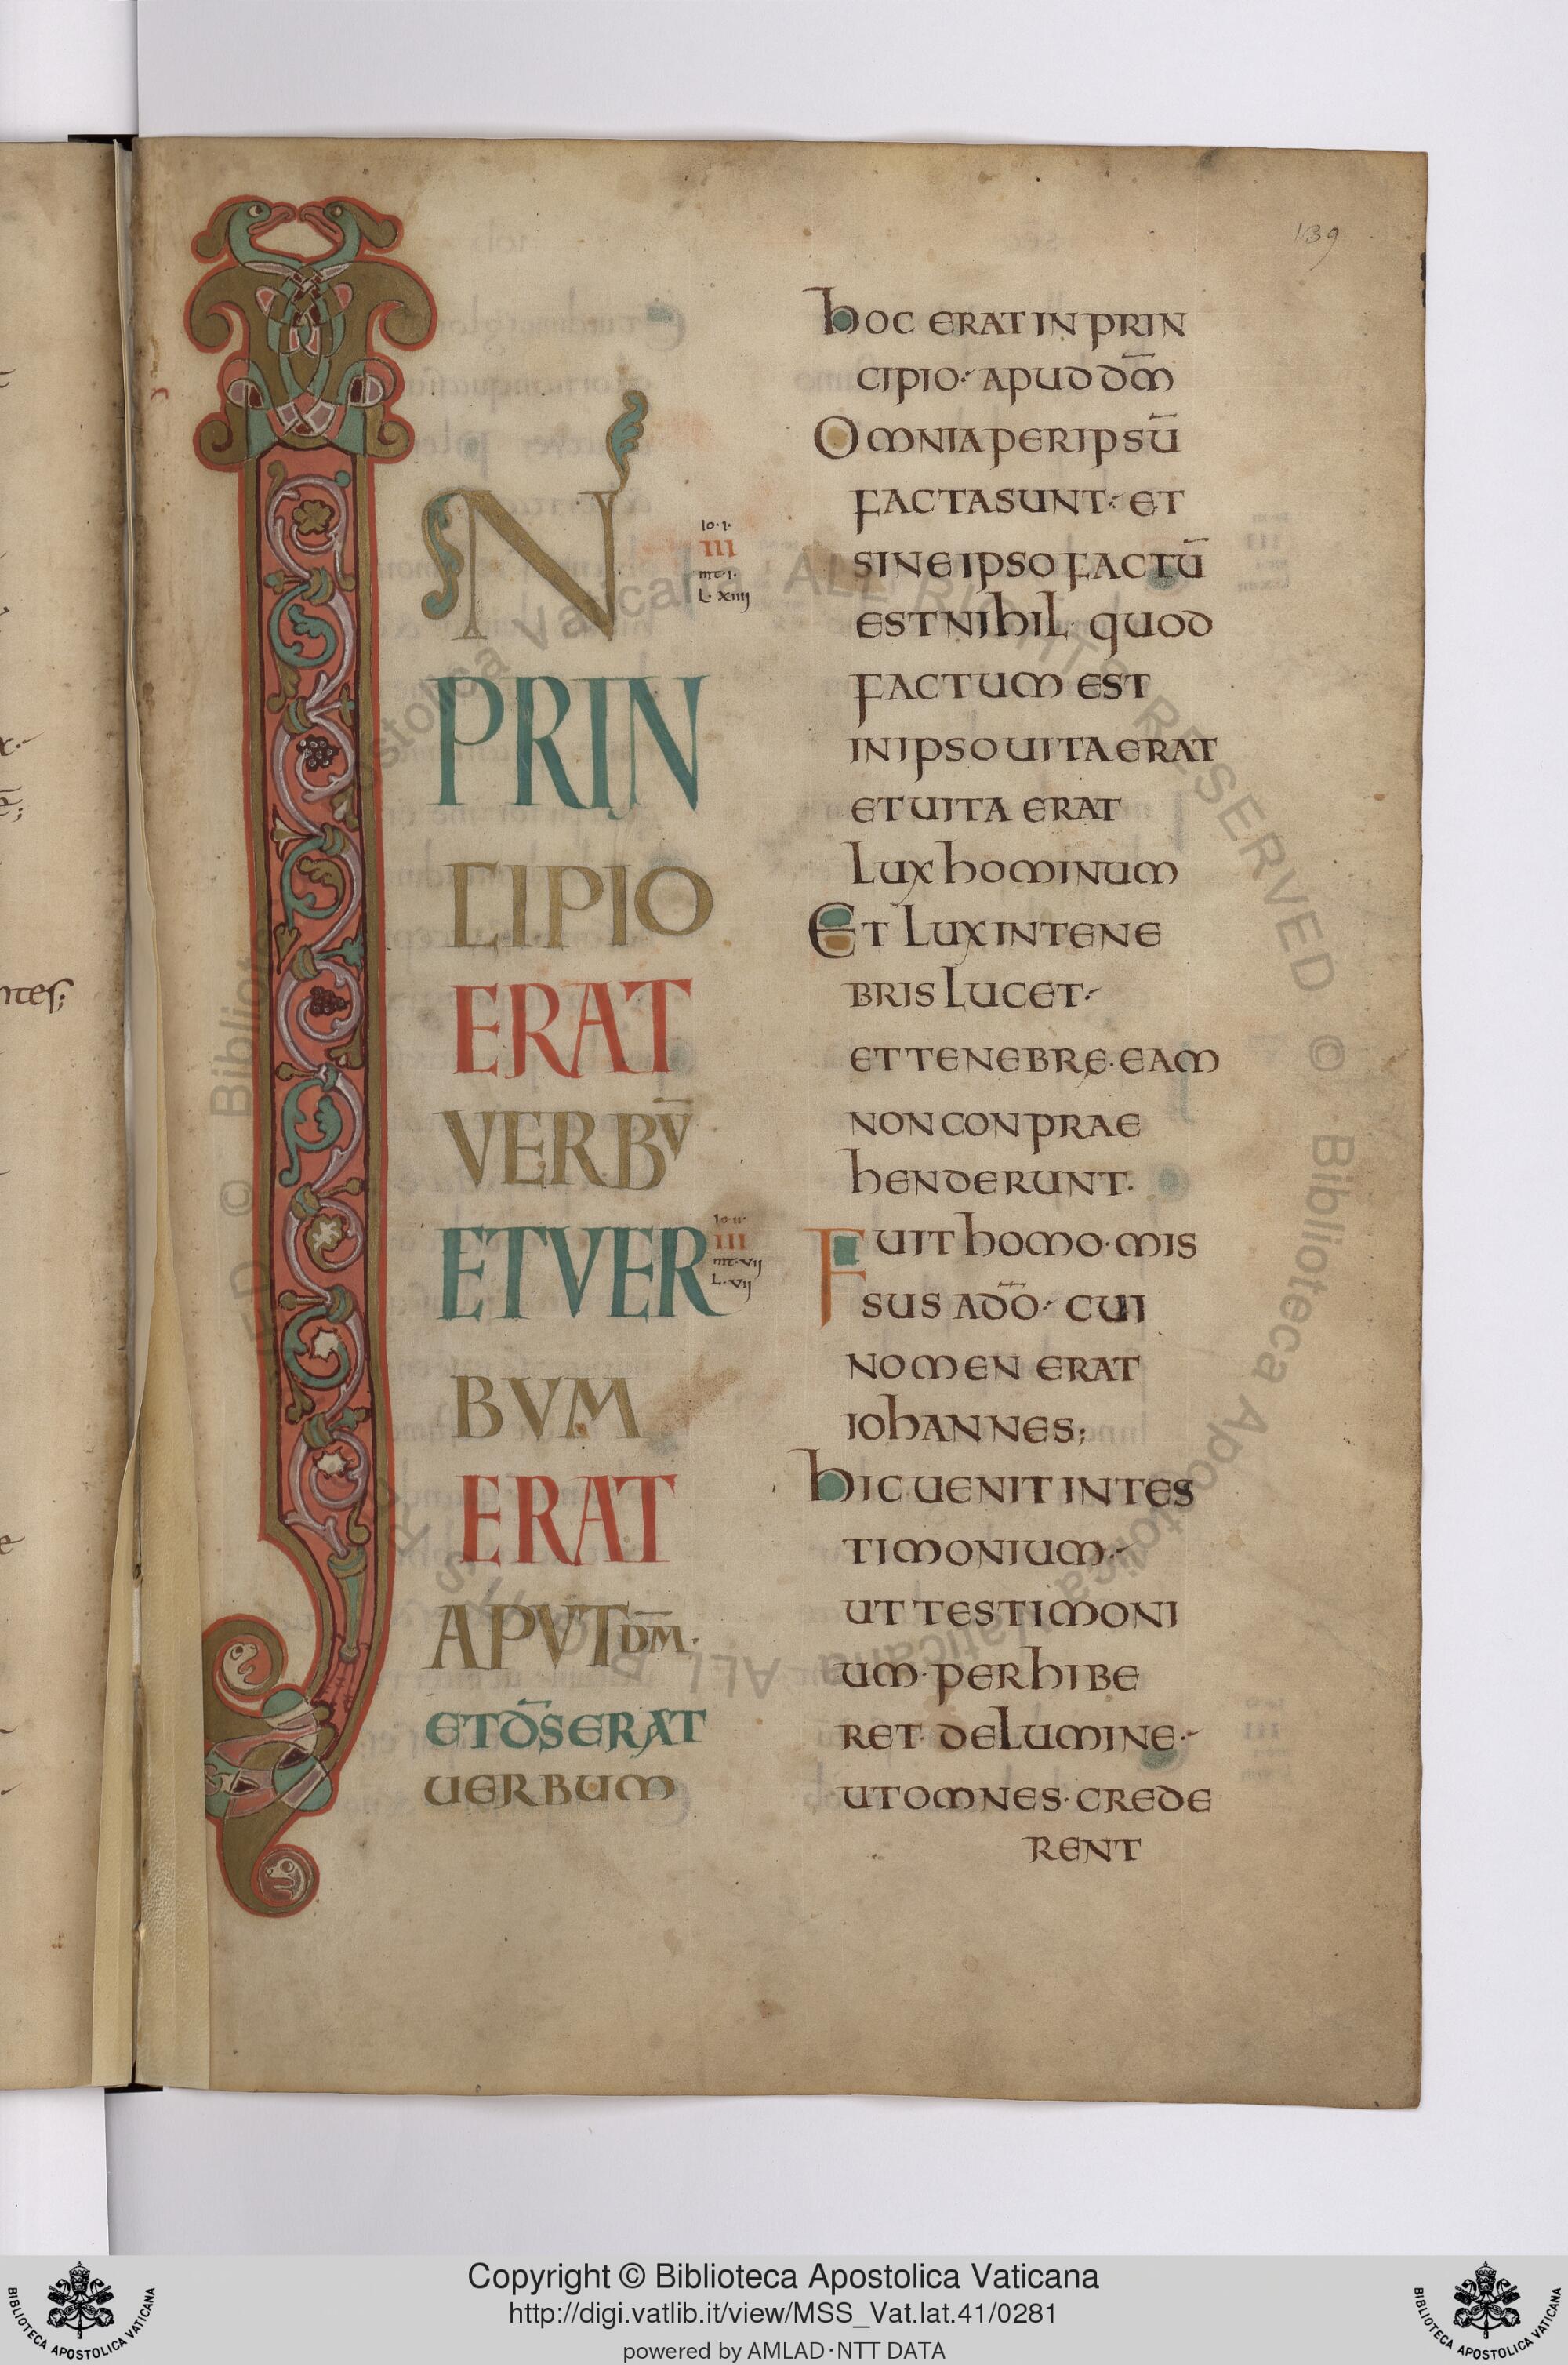 139
IN
PRIN
CIPIO
ERAT
VERBV̄
ETVER
BVM
ERAT
APVT DM̄·
ETDS̄ERAT
UERBUM
Io·I·
III
mt·I·
L·xiiii
Io·II·
III
mt·vij
L·vij
hOC ERAT IN PRIN
CIPIO· APUD DM̄
OMNIA PER IPSŪ
FACTA SUNT· ET
SINE IPSO FACTŪ
EST NIhIL· QUOD
FACTUM EST
IN IPSO UITA ERAT
ET UITA ERAT
LUX hOMINUM
ET LUX IN TENE
BRIS LUCET·
ET TENEBRĘ· EAM
NON CONPRAE
hENDERUNT·
FUIT hOMO· MIS
SUS A DŌ· CUI
NOMEN ERAT
IOhANNES;
hIC UENIT IN TES
TIMONIUM·
UT TESTIMONI
UM· PERhIBE
RET· DE LUMINE·
UT OMNES· CREDE
RENT
ntes;
© Biblioteca Apostolica Vaticana ALL RIGHTS RESERVED © Biblioteca Apostolica Vaticana ALL RIGHTS RESERVED
Copyright © Biblioteca Apostolica Vaticana
http://digi.vatlib.it/view/MSS_Vat.lat.41/0281
powered by AMLAD·NTT DATA
BIBLIOTECA APOSTOLICA VATICANA
BIBLIOTECA APOSTOLICA VATICANA